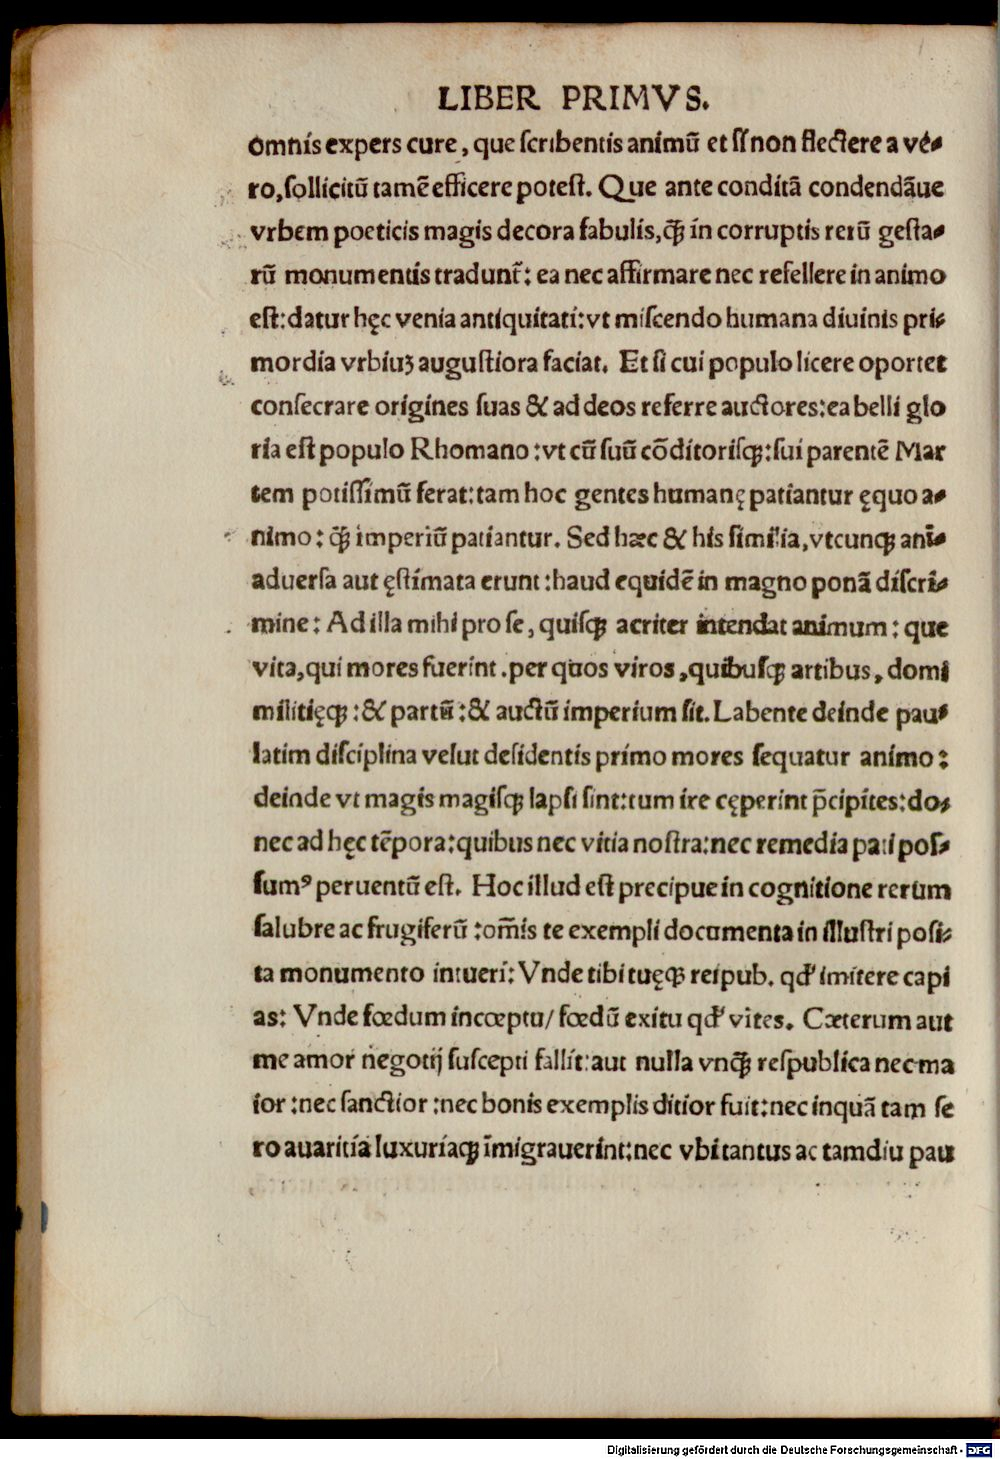 LIBER PRIMVS.
omnis expers cure, que scribentis animū et si non flectere a ve⸗
ro, sollicitū tamē efficere potest. Que ante conditā condendāue
vrbem poeticis magis decora fabulis, ꝙ̄ in corruptis rerū gesta⸗
rū monumentis tradunt᷑: ea nec affirmare nec refellere in animo
est: datur hęc venia antiquitati: vt miscendo humana diuinis pri⸗
mordia vrbiuꝫ augustiora faciat. Et si cui populo licere oportet
consecrare origines suas & ad deos referre auctores: ea belli glo
ria est populo Rhomano: vt cū suū cōditorisꝙ: sui parentē Mar
tem potissimū ferat: tam hoc gentes humanę patiantur ęquo a⸗
nimo: ꝙ̄ imperiū patiantur. Sed hæc & his similia, vtcunꝙ anī⸗
aduersa aut ęstimata erunt: haud equidē in magno ponā discri⸗
mine: Ad illa mihi pro se, quisꝙ acriter intendat animum: que
vita, qui mores fuerint. per quos viros, quibusꝙ artibus, domi
militięꝙ: & partū: & auctū imperium sit. Labente deinde pau⸗
latim disciplina velut desidentis primo mores sequatur animo:
deinde vt magis magisꝙ lapsi sint: tum ire cęperint p̄cipites: do⸗
nec ad hęc tēpora: quibus nec vitia nostra: nec remedia pati pos⸗
sumꝰ peruentū est. Hoc illud est precipue in cognitione rerum
salubre ac frugiferū: om̄is te exempli documenta in illustri posi⸗
ta monumento intueri: Vnde tibi tuęꝙ reipub. qđ imitere capi
as: Vnde fœdum incœptu/ fœdū exitu qđ vites. Cæterum aut
me amor negotij suscepti fallit: aut nulla vnꝙ̄ respublica nec ma
ior: nec sanctior: nec bonis exemplis ditior fuit: nec inquā tam se
ro auaritia luxuriaꝙ īmigrauerint: nec vbi tantus ac tamdiu pau
Digitalisierung gefördert durch die Deutsche Forschungsgemeinschaft - DFG